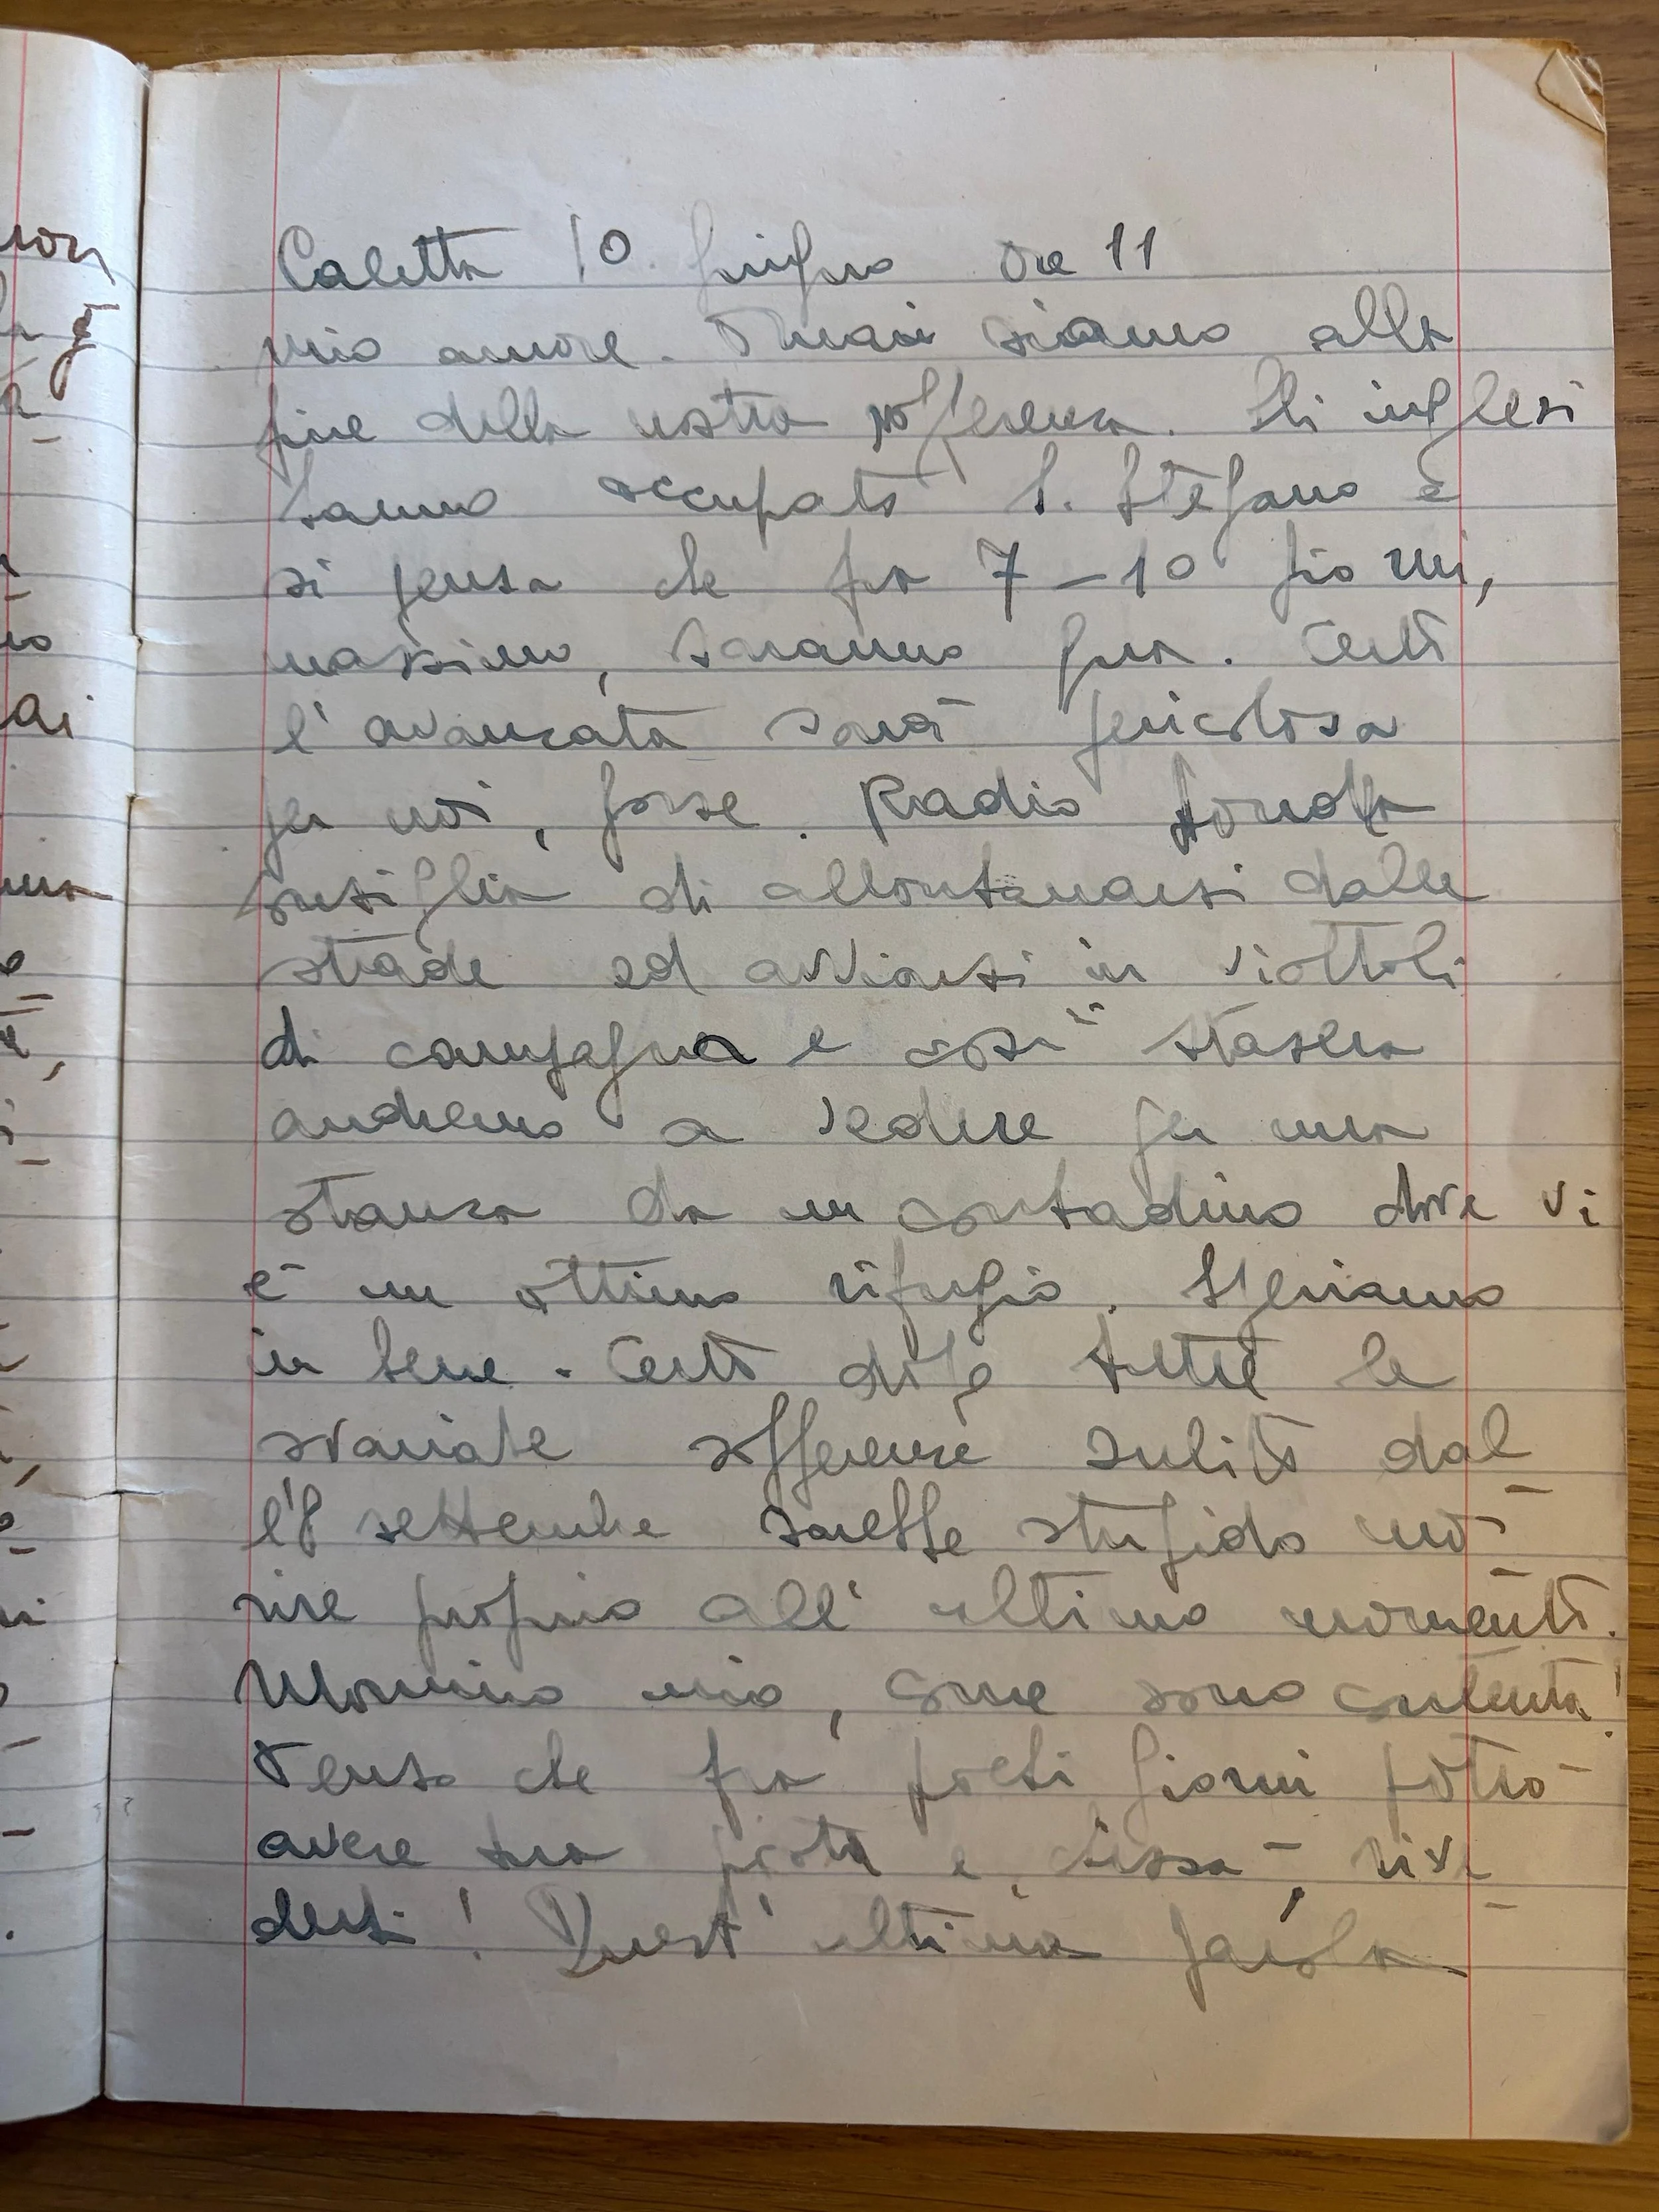 Caletta 10. giugno Ore 11
mio amore. Ormai siamo alla
fine della nostra sofferenza. Gli inglesi
hanno occupato S. Stefano e
si pensa che fra 7-10 giorni,
massimo, saranno qua. Certo
l'avanzata sarà pericolosa
per noi, forse. Radio Londra
consiglia di allontanarsi dalle
strade ed avviarsi in viottoli
di campagna e così stasera
andremo a vedere per una
stanza da un contadino dove vi
è un ottimo rifugio. Speriamo
in bene. Certo dopo tutte le
svariate sofferenze subite dal
l'8 settembre sarebbe stupido mo-
rire proprio all'ultimo momento.
mio, come sono contenta!
Penso che fra pochi giorni potrò
avere tua posta e, chissà, rive-
derti! Quest'ultima parola